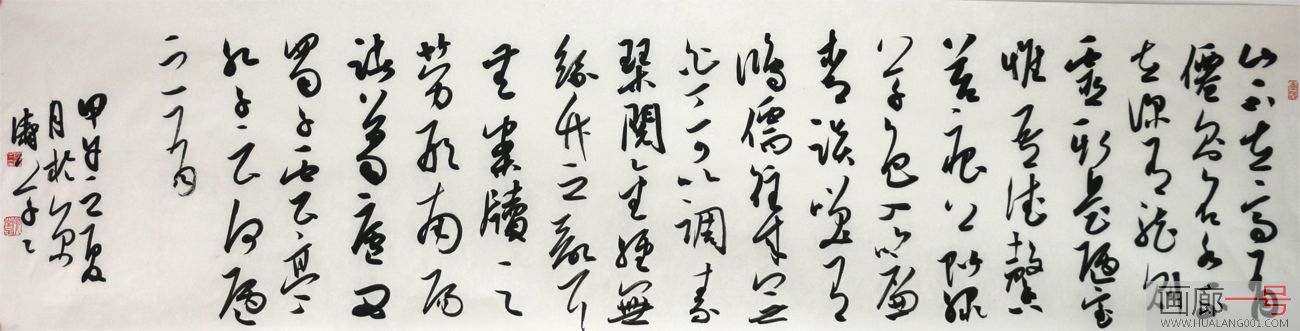 山不在高有
僊則名水不
在深有龍則
靈斯是陋室
惟吾德馨
苔痕上階綠
草色入簾
青談笑有
鴻儒往来無
白丁可以調素
琴閱金經無
絲竹之亂耳
無案牘之
勞形南陽
諸葛廬西
蜀子雲亭
孔子云何陋
之有
甲午之夏
月於
画廊一号
WWW.HUALANG001.COM